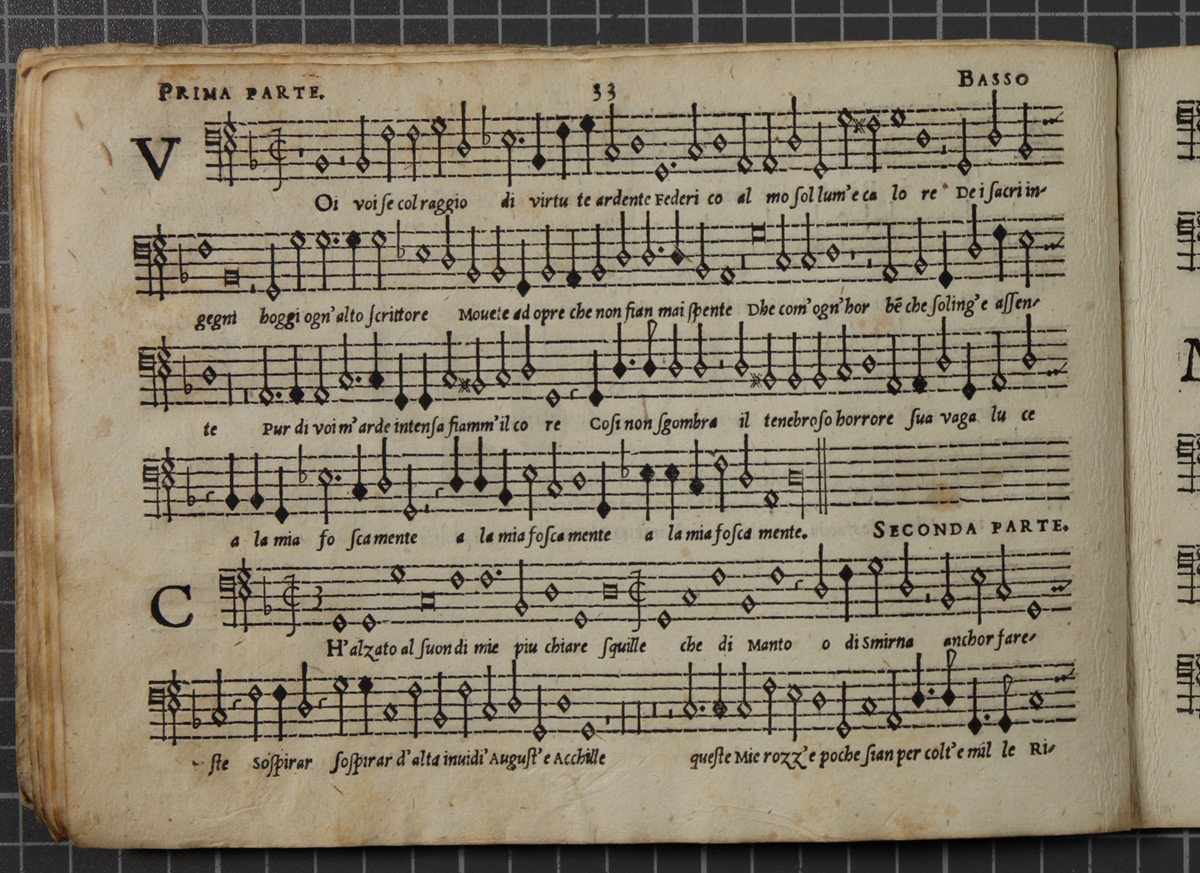 PRIMA PARTE. 33 BASSO
V
Oi voi se col raggio di virtu te ardente Federi co al mo sol lum'e ca lo re De i sacri in-
gegni hoggi ogn'alto scrittore Mouete ad opre che non fian mai spente Dhe com'ogn'hor bẽ che soling'e assen-
te Pur di voi m'arde intensa fiamm'il co re Cosi non sgombra il tenebroso horrore sua vaga lu ce
a la mia fo sca mente a la mia fosca mente a la mia fosca mente. SECONDA PARTE.
C 3
H'alzato al suon di mie piu chiare squille che di Manto o di Smirna anchor fare-
ste Sospirar sospirar d'alta inuidi' August' e Acchille queste Mie rozz'e poche sian per colt'e mil le Ri-